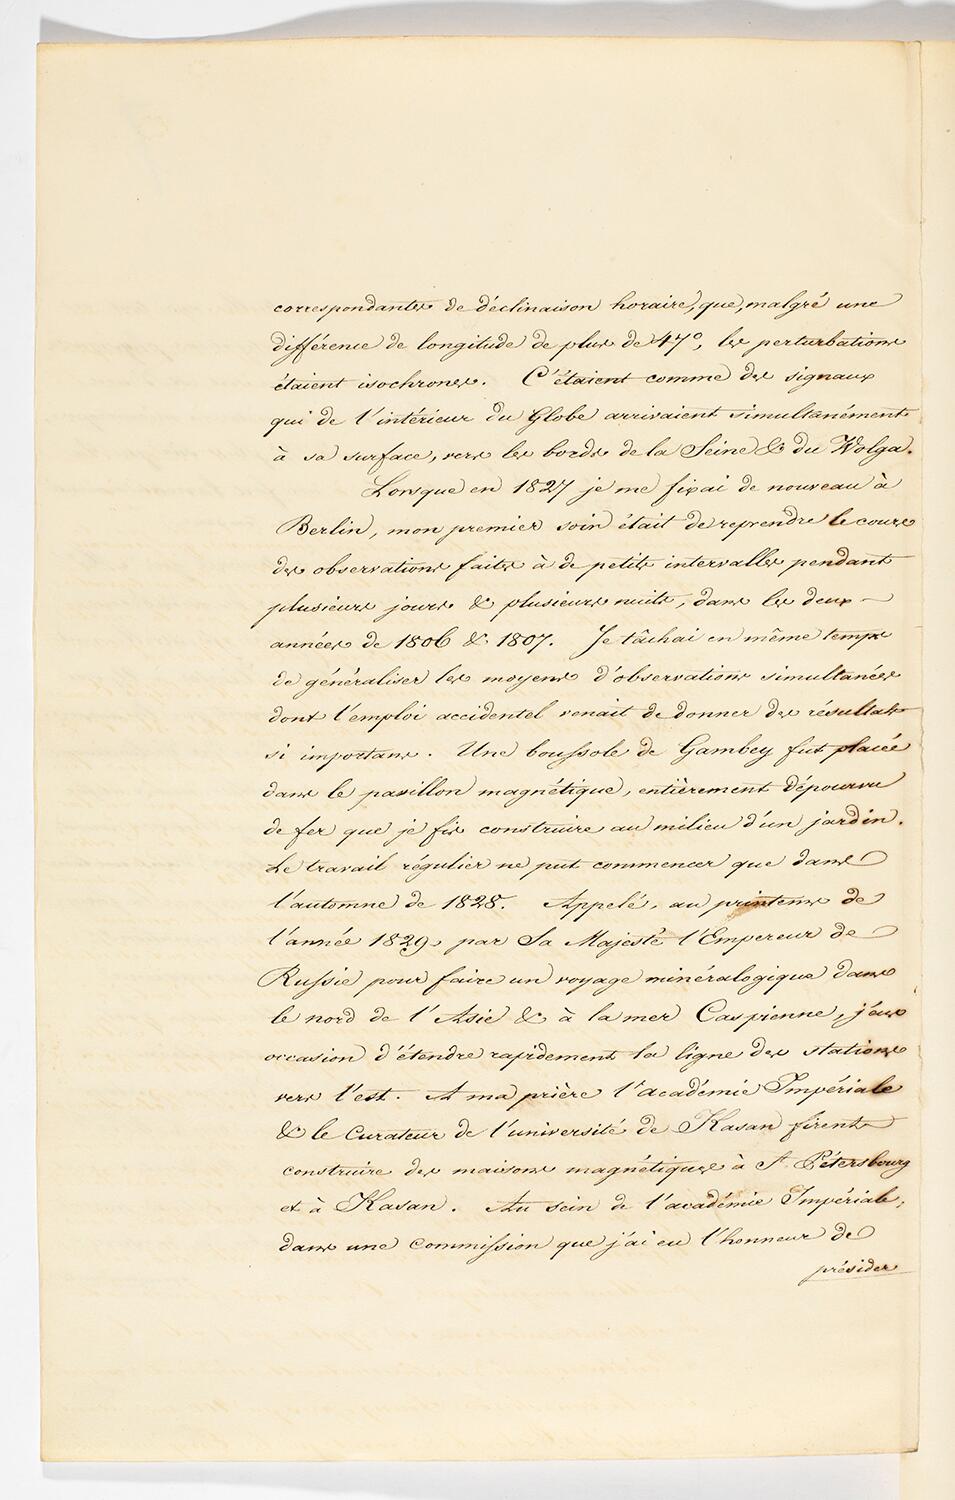 correspondantes de déclinaison horaire, que, malgré une
différence de longitude de plus de 47°, les perturbations
étaient isochrones. C'étaient comme des signaux
qui de l'intérieur du Globe arrivaient simultanément
à sa surface, vers les bords de la Seine & du Wolga.
Lorsque en 1827 je me fixai de nouveau à
Berlin, mon premier soin était de reprendre le cours
des observations faites à de petits intervalles pendant
plusieurs jours & plusieurs nuits, dans les deux
années de 1806 & 1807. Je tâchai en même temps
de généraliser les moyens d'observations simultanées
dont l'emploi accidentel venait de donner des résultats
si importans. Une boussole de Gambey fut placée
dans le pavillon magnétique, entièrement dépourvu
de fer que je fis construire au milieu d'un jardin.
Le travail régulier ne put commencer que dans
l'automne de 1828. Appelé, au printems de
l'année 1829, par Sa Majesté l'Empereur de
Russie pour faire un voyage minéralogique dans
le nord de l'Asie & à la mer Caspienne, j'eus
occasion d'étendre rapidement la ligne des stations
vers l'est. A ma prière l'académie Impériale
& le Curateur de l'université de Kasan firent
construire des maisons magnétiques à St. Pétersbourg
et à Kasan. Au sein de l'académie Impériale,
dans une commission que j'ai eu l'honneur de
présider